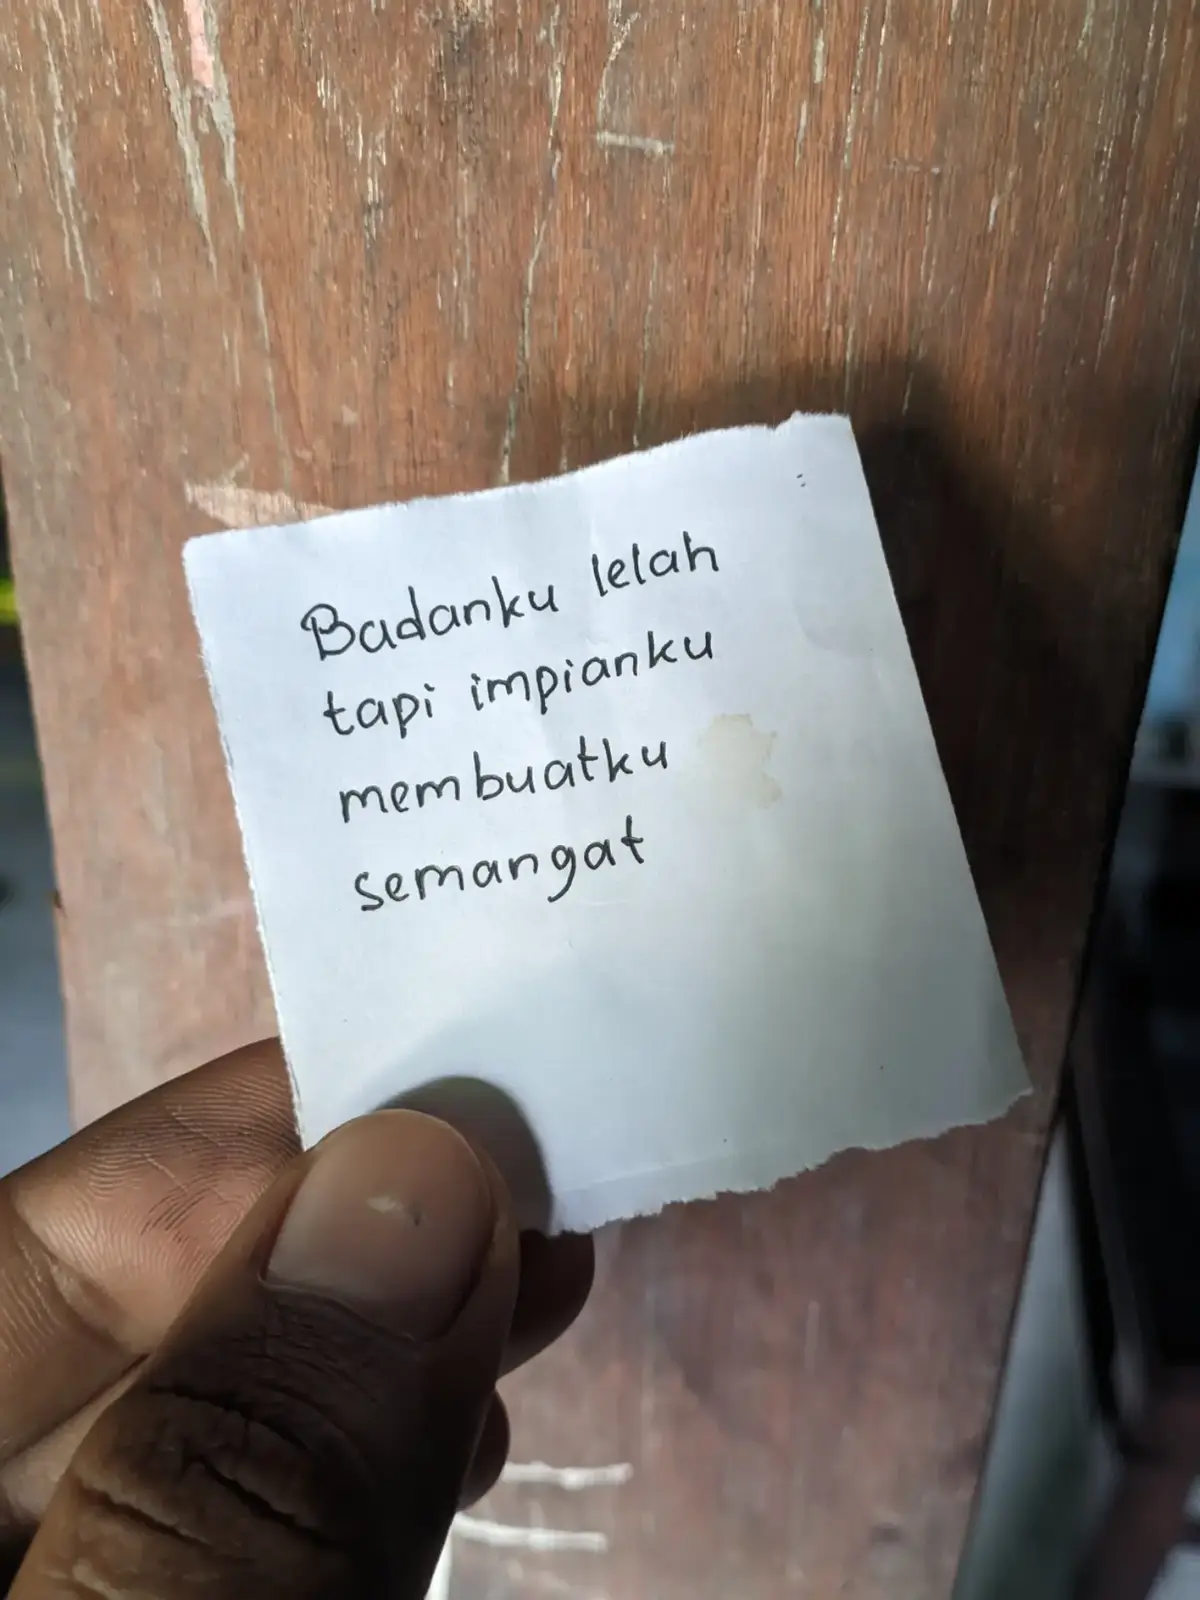 Badanku lelah
tapi impianku
membuatku
semangat